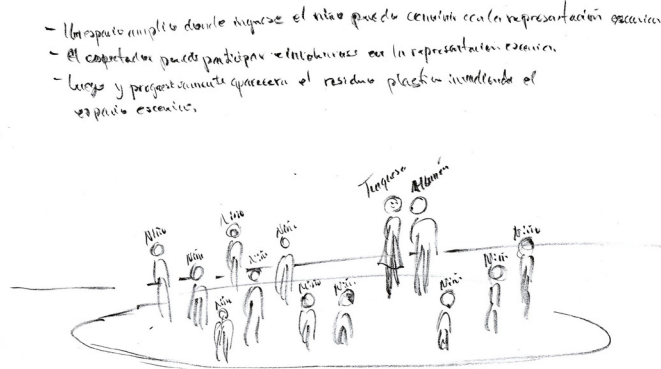 - Un espacio amplio donde ingrese el niño puede convivir con la representación escenica
- El espectador puede participar e involucrarse en la representacion escenica.
- Luego y progresivamente aparecera el residuo plastico inundando el
espacio escenico.
Niño
Niño
Niño
Niño
Niño
Niño
Niño
Niño
Niño
Niño
Niño